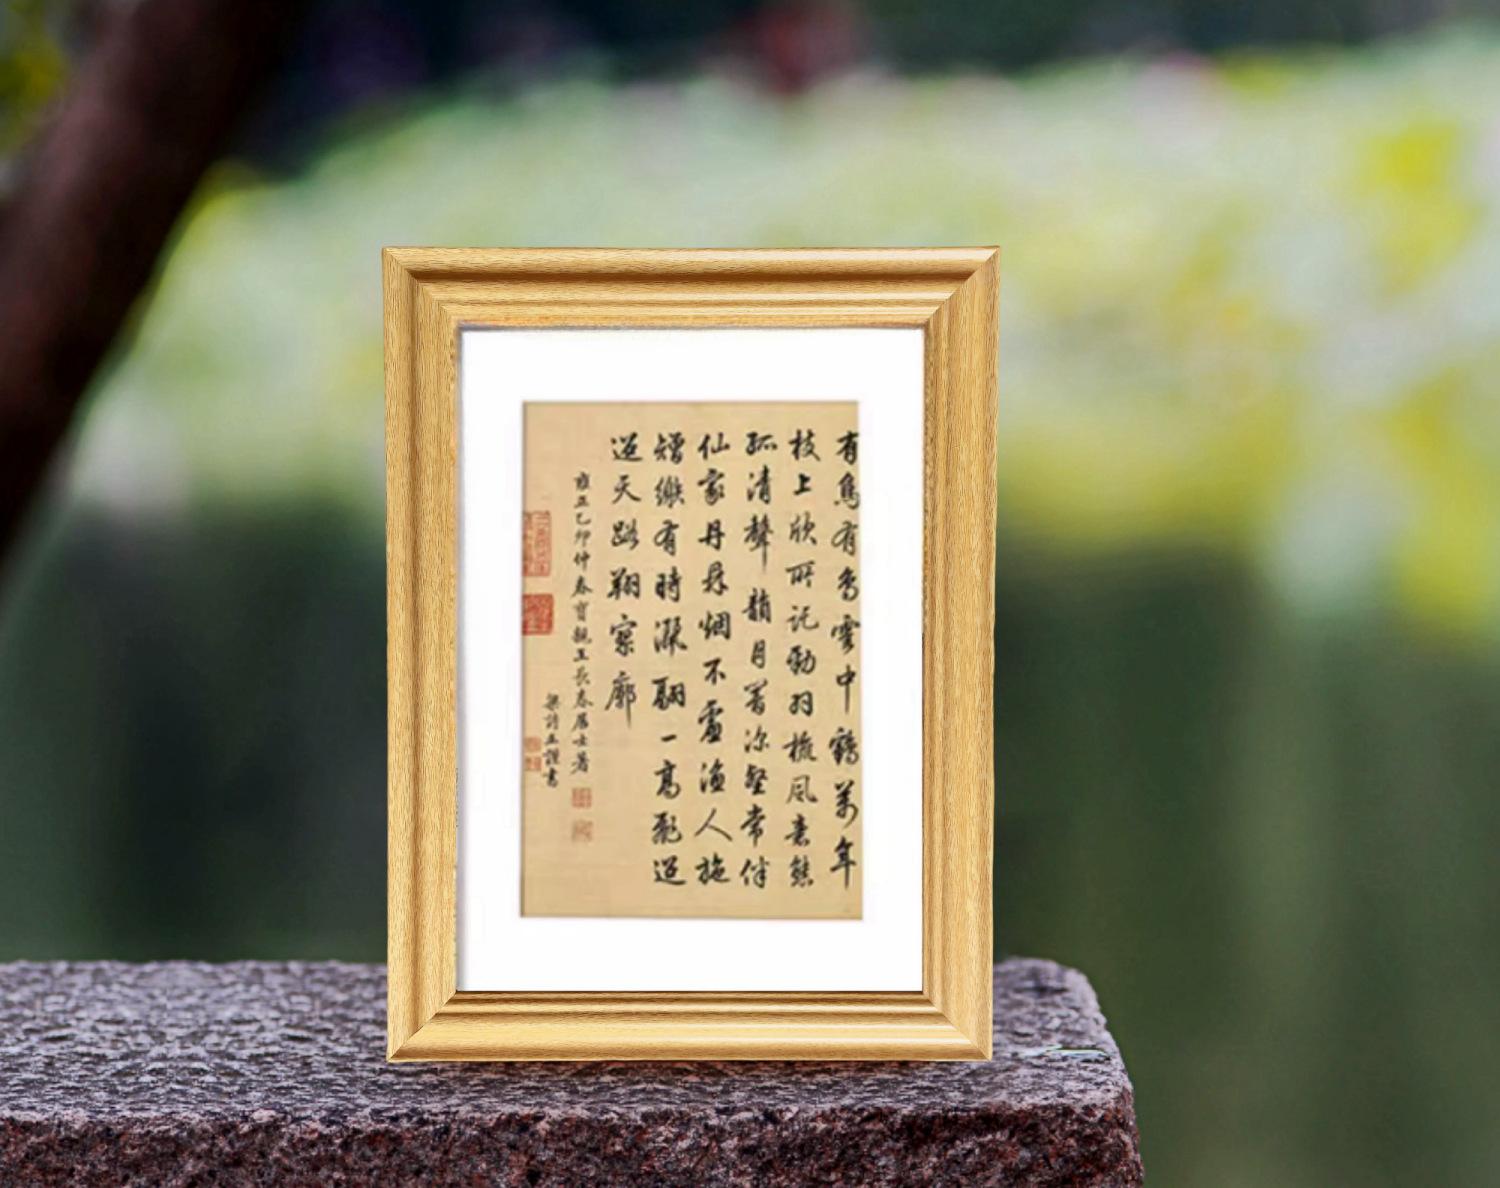 有鳥有鳥雲中鶴萬年
枝上欣所託勁羽梳風意態
孤清聲韻月署深壑常伴
仙家丹鼎烟不虞漁人施
矰繳有時漱翮一高飛迢
迢天路翔寥廓
雍正乙卯仲春寳親王長春居士著
梁詩正謹書